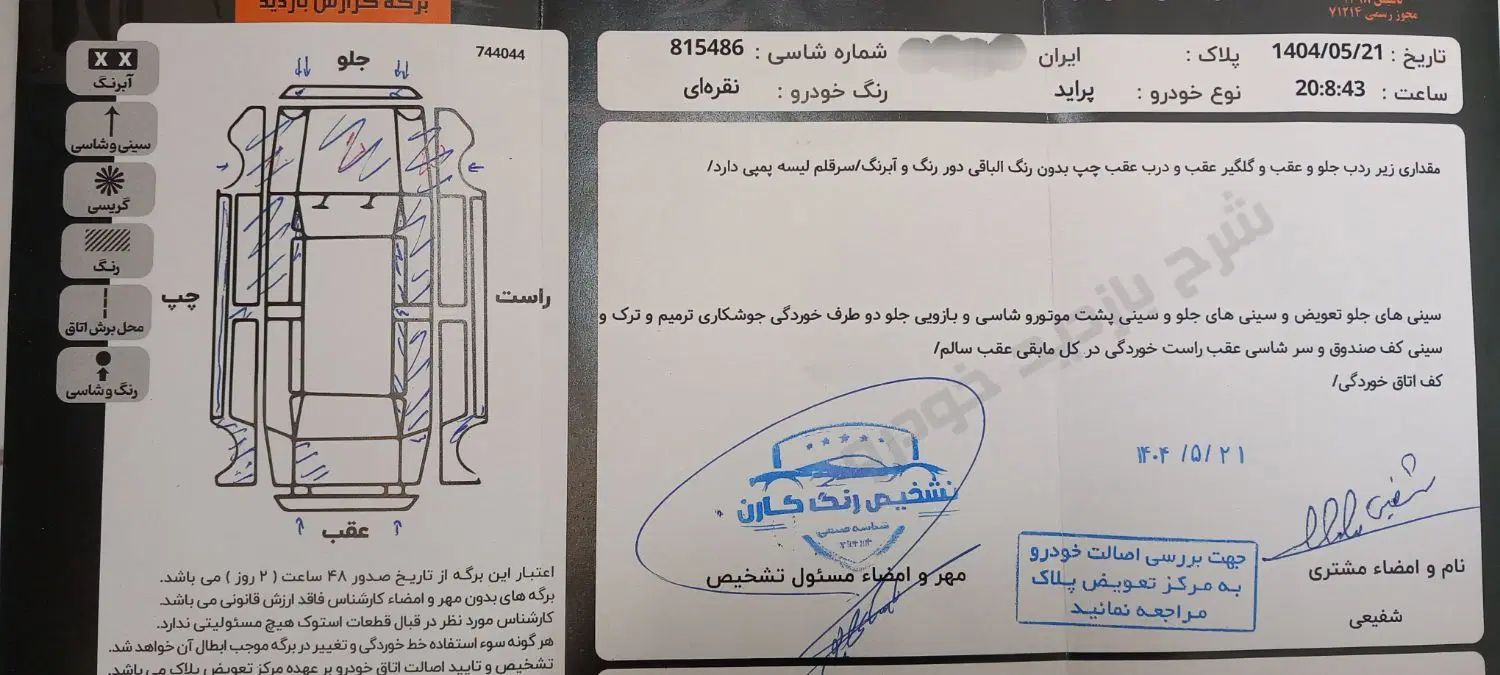 برگه گزارش بازدید
مجوز رسمی ۷۱۲۱۴
تاریخ : 1404/05/21
پلاک :
ایران
شماره شاسی : 815486
ساعت : 20:8:43
نوع خودرو : پراید
رنگ خودرو : نقره‌ای
744044
X X
آبرنگ
سینی و شاسی
گریسی
رنگ
محل برش اتاق
رنگ و شاسی
جلو
چپ
راست
عقب
مقداری زیر ردب جلو و عقب و گلگیر عقب و درب عقب چپ بدون رنگ الباقی دور رنگ و آبرنگ/سرقلم لیسه پمپی دارد/
سینی های جلو تعویض و سینی های جلو و سینی پشت موتورو شاسی و بازویی جلو دو طرف خوردگی جوشکاری ترمیم و ترک و
سینی کف صندوق و سر شاسی عقب راست خوردگی در کل مابقی عقب سالم/
کف اتاق خوردگی/
شرح بازدید خودرو
۱۴۰۴ /۵/ ۲۱
تشخیص رنگ کارن
شناسه صنفی
جهت بررسی اصالت خودرو
به مرکز تعویض پلاک
مراجعه نمائید
شفیعی
نام و امضاء مشتری
شفیعی
مهر و امضاء مسئول تشخیص
اعتبار این برگه از تاریخ صدور ۴۸ ساعت ( ۲ روز ) می باشد.
برگه های بدون مهر و امضاء کارشناس فاقد ارزش قانونی می باشد.
کارشناس مورد نظر در قبال قطعات استوک هیچ مسئولیتی ندارد.
هر گونه سوء استفاده خط خوردگی و تغییر در برگه موجب ابطال آن خواهد شد.
تشخیص و تایید اصالت اتاق خودرو بر عهده مرکز تعویض پلاک می باشد.